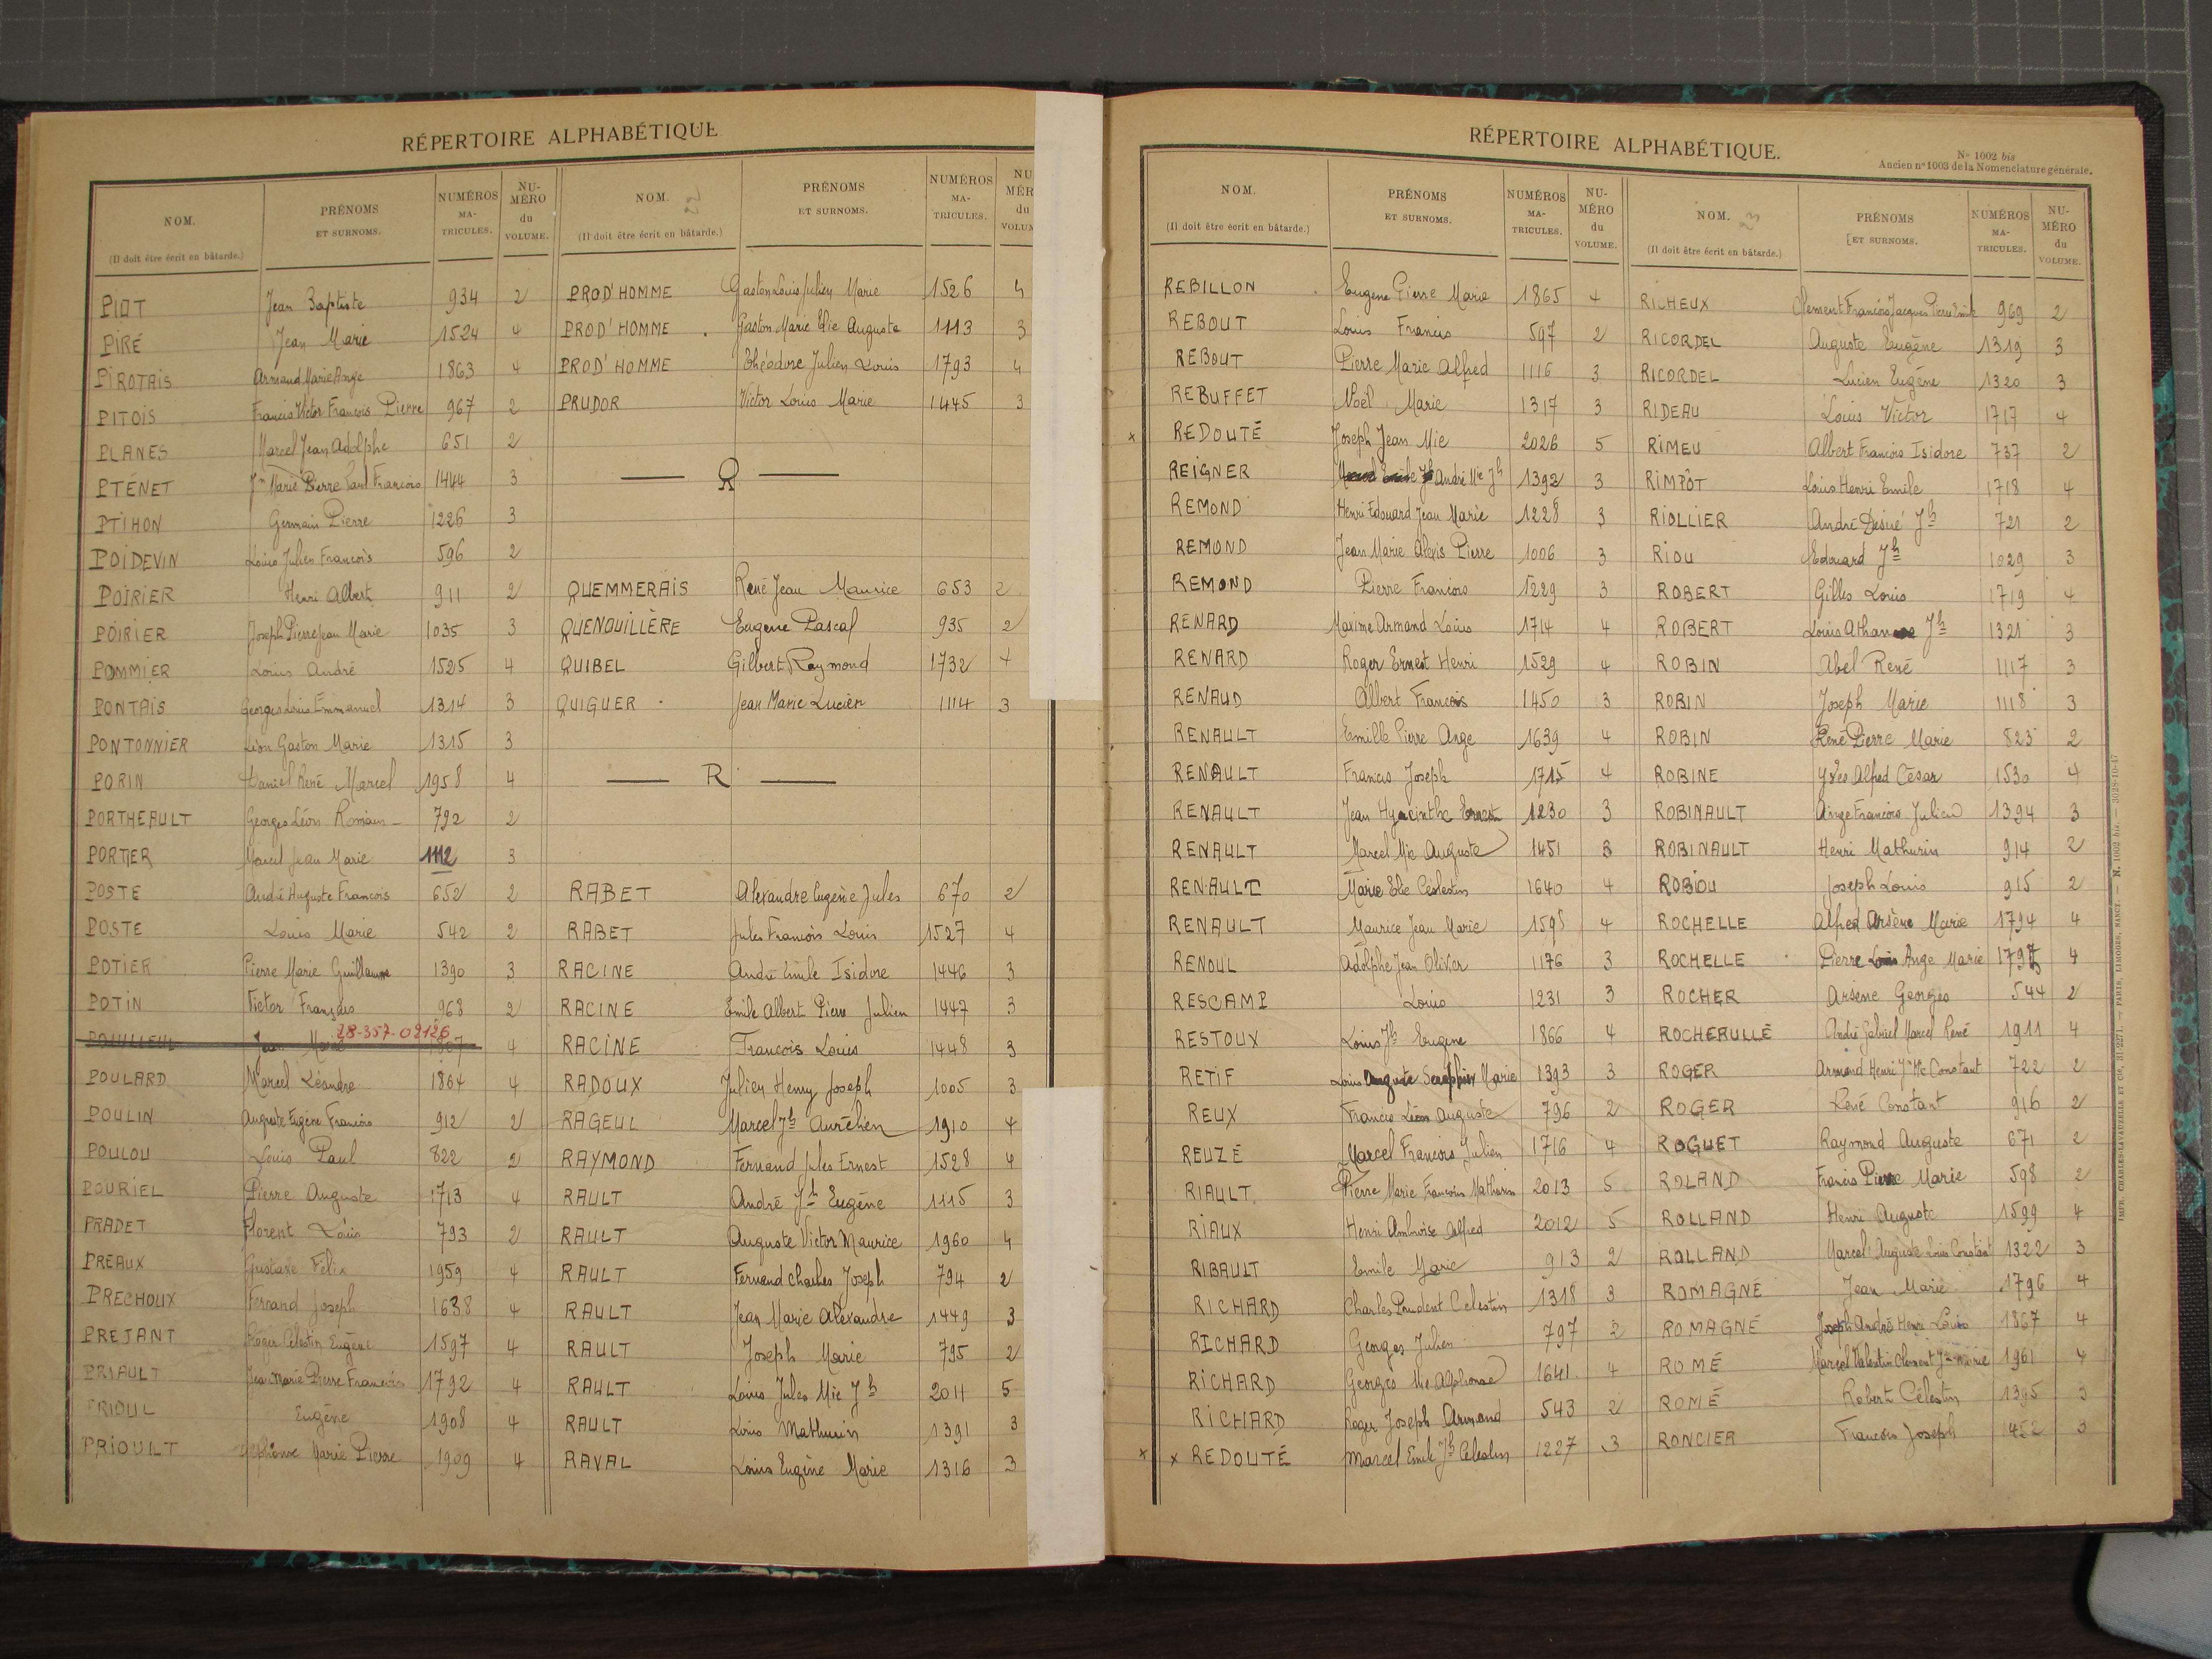 RÉPERTOIRE ALPHABÉTIQUE
NOM. (Il doit être écrit en bâtarde.) PRÉNOMS ET SURNOMS. NUMÉROS MATRICULES. NUMÉRO du VOLUME.
PIOT Jean Baptiste 934 2
PIRÉ Jean Marie 1524 4
PIROTAIS Armand Marie Ange 1863 4
PITOIS Francis Victor François Pierre 967 2
PLANES Marcel Jean Adolphe 651 2
PTÉNET Jn Marie Pierre Paul François 1444 3
PTIHON Germain Pierre 1226 3
POIDEVIN Louis Julien François 596 2
POIRIER Henri Albert 911 2
POIRIER Joseph Pierre Jean Marie 1035 3
POMMIER Louis André 1525 4
PONTAIS Georges Louis Emmanuel 1314 3
PONTONNIER Léon Gaston Marie 1315 3
PORIN Daniel René Marcel 1958 4
PORTHEAULT Georges Léon Romain 792 2
PORTIER Marcel Jean Marie 1112 3
POSTE André Auguste François 652 2
POSTE Louis Marie 542 2
POTIER Pierre Marie Guillaume 1390 3
POTIN Victor François 968 2
28-357-02126
POUILLEUL Jean Marie 1867 4
POULARD Marcel Léandre 1864 4
POULIN Auguste Eugène François 912 2
POULOU Louis Paul 822 2
POURIEL Pierre Auguste 1713 4
PRADET Florent Louis 793 2
PREAUX Gustave Félix 1959 4
PRECHOUX Fernand Joseph 1638 4
PREJANT Roger Célestin Eugène 1597 4
PRIAULT Jean Marie Pierre François 1792 4
PRIOUL Eugène 1908 4
PRIOULT Alphonse Marie Pierre 1909 4
NOM. (Il doit être écrit en bâtarde.) PRÉNOMS ET SURNOMS. NUMÉROS MATRICULES. NUMÉR du VOLUM
PROD'HOMME Gaston Louis Julien Marie 1526 4
PROD'HOMME Gaston Marie Elie Auguste 1113 3
PROD'HOMME Théodore Julien Louis 1793 4
PRUDOR Victor Louis Marie 1445 3
Q
QUEMMERAIS René Jean Maurice 653 2
QUENOUILLÈRE Eugène Pascal 935 2
QUIBEL Gilbert Raymond 1732 4
QUIGUER Jean Marie Lucien 1114 3
R
RABET Alexandre Eugène Jules 670 2
RABET Jules François Louis 1527 4
RACINE André Emile Isidore 1446 3
RACINE Emile Albert Pierre Julien 1447 3
RACINE François Louis 1448 3
RADOUX Julien Henry Joseph 1005 3
RAGEUL Marcel Jh Aurélien 1910 4
RAYMOND Fernand Jules Ernest 1528 4
RAULT André Jh Eugène 1115 3
RAULT Auguste Victor Maurice 1960 4
RAULT Fernand Charles Joseph 794 2
RAULT Jean Marie Alexandre 1449 3
RAULT Joseph Marie 795 2
RAULT Louis Jules Mie Jh 2011 5
RAULT Louis Mathurin 1391 3
RAVAL Louis Eugène Marie 1316 3
RÉPERTOIRE ALPHABÉTIQUE.
N° 1002 bis
Ancien n° 1003 de la Nomenclature générale.
NOM. (Il doit être écrit en bâtarde.) PRÉNOMS ET SURNOMS. NUMÉROS MATRICULES. NUMÉRO du VOLUME.
REBILLON Eugène Pierre Marie 1865 4
REBOUT Louis Francis 597 2
REBOUT Pierre Marie Alfred 1116 3
REBUFFET Noël Marie 1317 3
x REDOUTÉ Joseph Jean Mie 2026 5
REIGNER André Mie Jh 1392 3
REMOND Henri Edouard Jean Marie 1228 3
REMOND Jean Marie Alexis Pierre 1006 3
REMOND Pierre François 1229 3
RENARD Maxime Armand Louis 1714 4
RENARD Roger Ernest Henri 1529 4
RENAUD Albert François 1450 3
RENAULT Emille Pierre Ange 1639 4
RENAULT Francis Joseph 1715 4
RENAULT Jean Hyacinthe Ernest 1230 3
RENAULT Marcel Mie Auguste 1451 3
RENAULT Marie Elie Céslestin 1640 4
RENAULT Maurice Jean Marie 1598 4
RENOUL Adolphe Jean Olivier 1176 3
RESCAMP Louis 1231 3
RESTOUX Louis Jh Eugène 1866 4
RETIF Louis Auguste Seraphin Marie 1393 3
REUX Francis Léon Auguste 796 2
REUZÉ Marcel François Julien 1716 4
RIAULT Pierre Marie François Mathurin 2013 5
RIAUX Henri Ambroise Alfred 2012 5
RIBAULT Emile Marie 913 2
RICHARD Charles Prudent Celestin 1318 3
RICHARD Georges Julien 797 2
RICHARD Georges Mie Alphonse 1641 4
RICHARD Roger Joseph Armand 543 2
x x REDOUTÉ Marcel Emile Jh Celestin 1227 3
NOM. (Il doit être écrit en bâtarde.) PRÉNOMS ET SURNOMS. NUMÉROS MATRICULES. NUMÉRO du VOLUME.
RICHEUX Clement François Jacques Pierre Emile 969 2
RICORDEL Auguste Eugène 1319 3
RICORDEL Lucien Eugène 1320 3
RIDEAU Louis Victor 1717 4
RIMEU Albert François Isidore 737 2
RIMPÔT Louis Henri Emile 1718 4
RIOLLIER André Desiré Jh 721 2
RIOU Edouard Jh 1029 3
ROBERT Gilles Louis 1719 4
ROBERT Louis Athanase Jh 1321 3
ROBIN Abel René 1117 3
ROBIN Joseph Marie 1118 3
ROBIN René Pierre Marie 823 2
ROBINE Yves Alfred César 1530 4
ROBINAULT Ange François Julien 1394 3
ROBINAULT Henri Mathurin 914 2
ROBIOU Joseph Louis 915 2
ROCHELLE Alfred Arsène Marie 1794 4
ROCHELLE Pierre Louis Ange Marie 4
ROCHER Arsène Georges 544 2
ROCHERULLÉ André Gabriel Marcel René 1911 4
ROGER Armand Henri Jn Mie Constant 722 2
ROGER René Constant 916 2
ROGUET Raymond Auguste 671 2
ROLAND Francis Pierre Marie 598 2
ROLLAND Henri Auguste 1599 4
ROLLAND Marcel Auguste Louis Constant 1322 3
ROMAGNÉ Jean Marie 1796 4
ROMAGNÉ Joseph André Henri Louis 1867 4
ROMÉ Marcel Valentin Clement Jn Marie 1961 4
ROMÉ Robert Célestin 1395 3
RONCIER François Joseph 1452 3
IMPR. CHARLES-LAVAUZELLE ET Cie, — PARIS, LIMOGES, NANCY. — N. 1002 bis — 3028-10-47